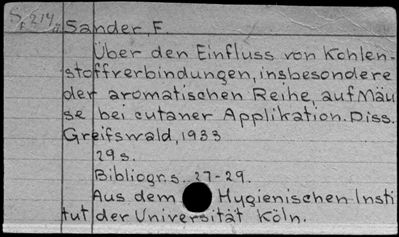 Sander, F.
Über den Einfluss von Kohlen-
stoffverbindungen, insbesondere
der aromatischen Reihe, auf Mäu
se bei cutaner Applikation. Diss.
Greifswald, 1933
29 s.
Bibliogr. s. 27-29.
Aus dem Hygienischen Insti
tut der Universität Köln.